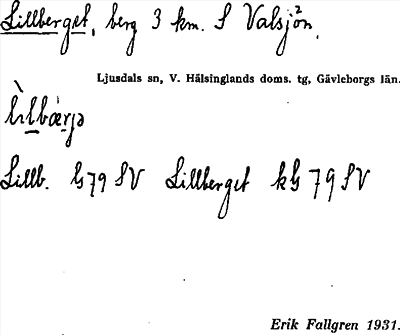 Lillberget, berg 3 km. S Valsjön.
Ljusdals sn, V. Hälsinglands doms. tg, Gävleborgs län.
Lillb. G79 SV Lillberget kG 79 SV
Erik Fallgren 1931.